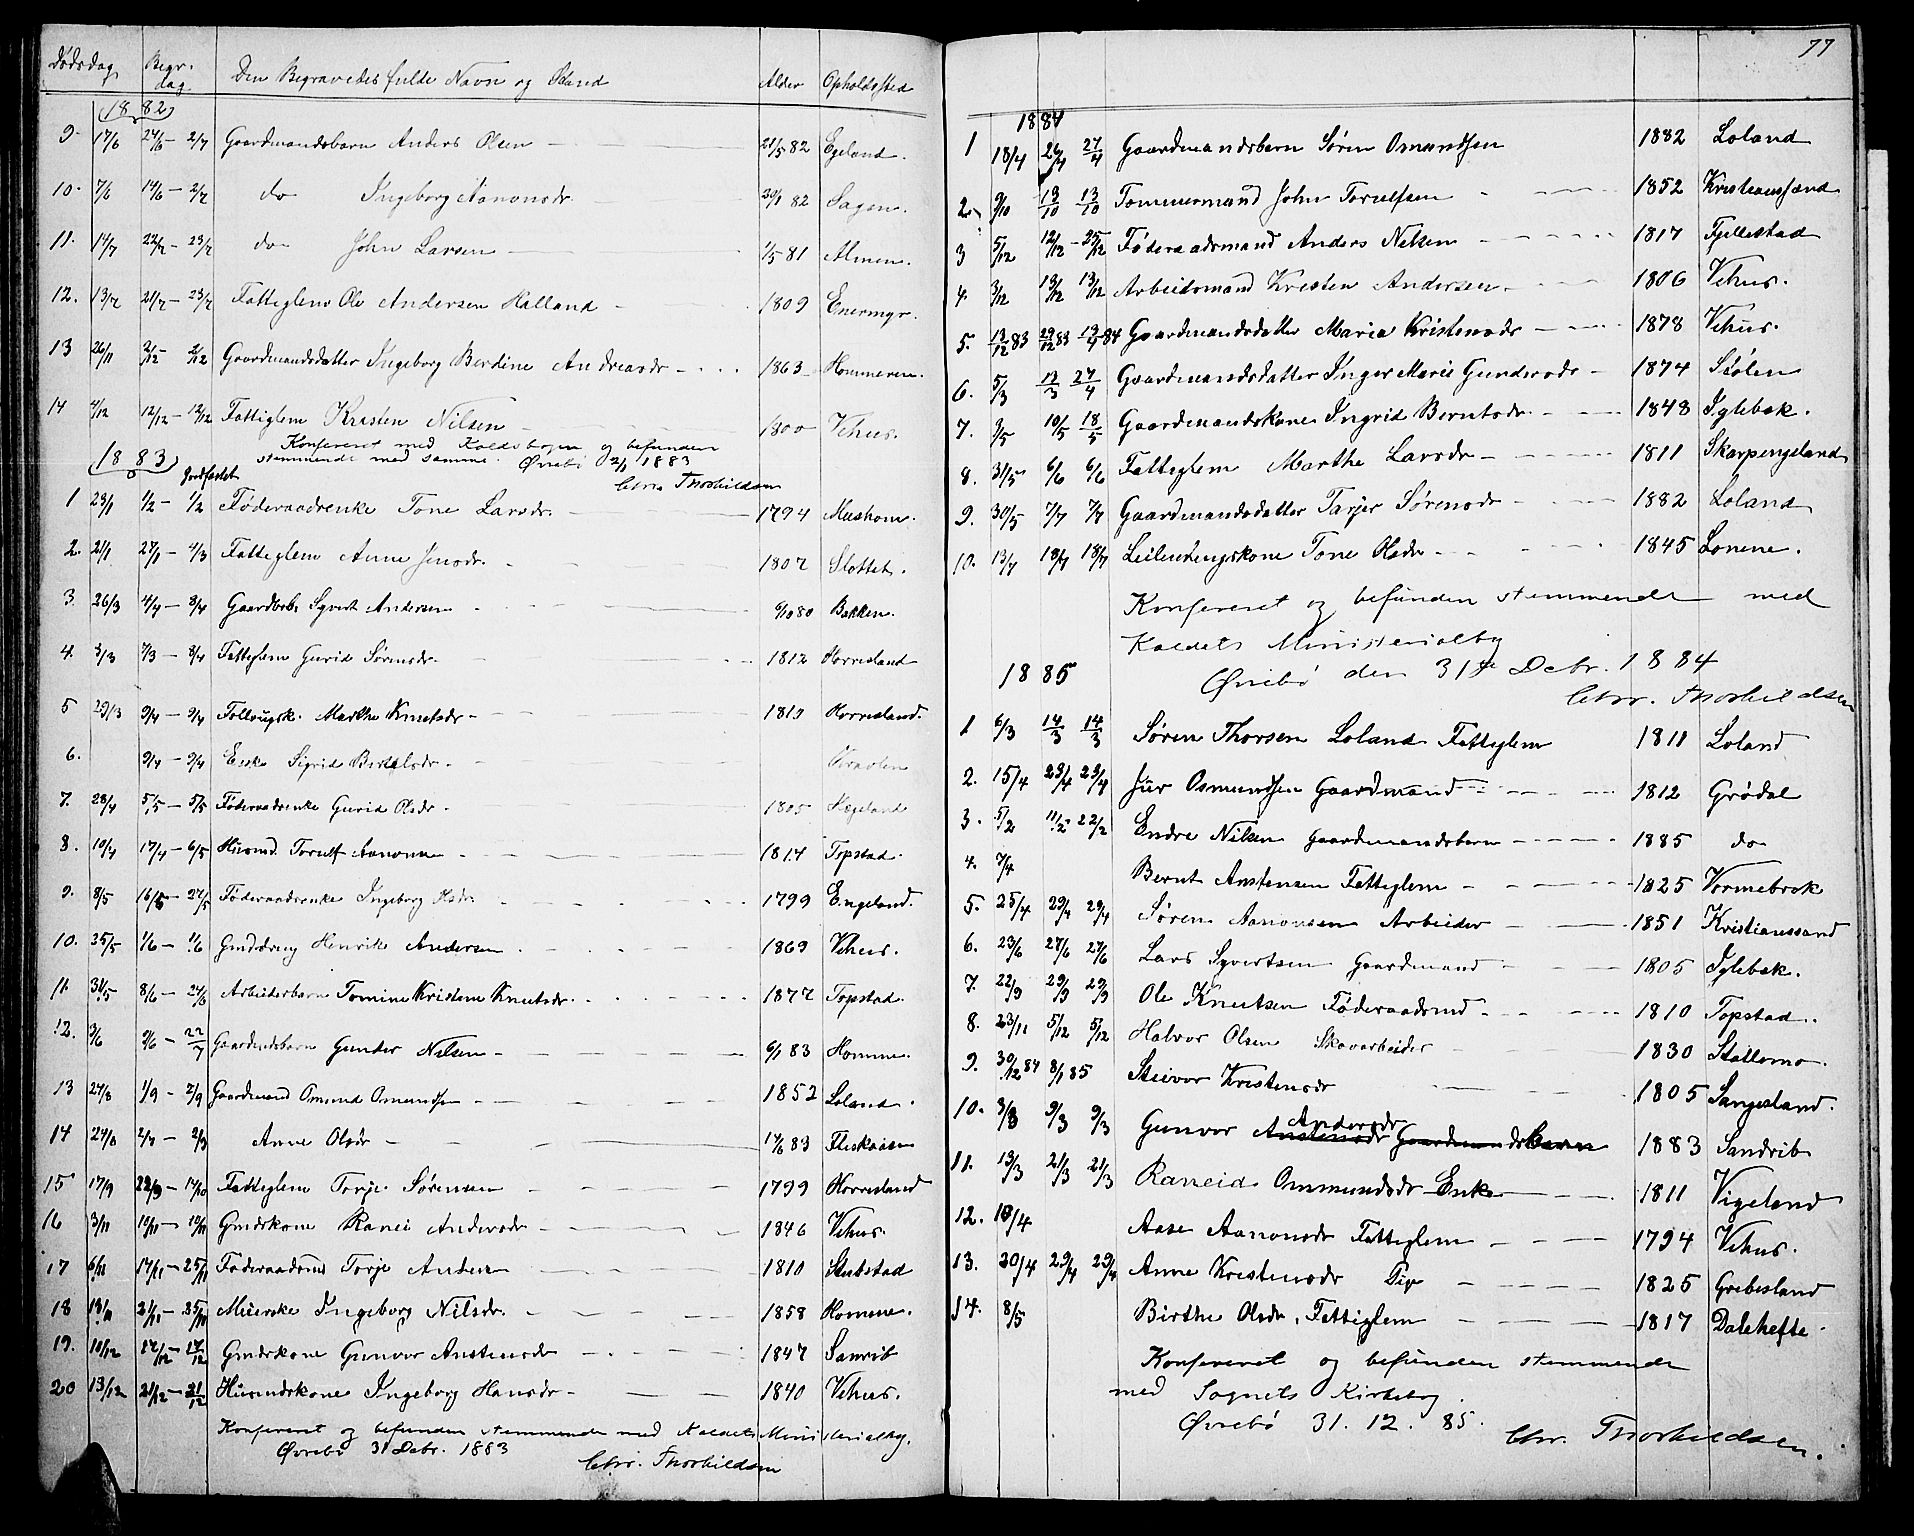 Dødsdag Begr. dag. Den Begravedes fulde Navn og Stand Alder Opholdssted
1882
9 17/6 24/6 – 2/7 Gaardmandsbarn Anders Olsen 21/5 82 Egeland.
10. 7/6 14/6 – 2/7 do Ingeborg Aanonsdr 30/1 82 Sagen.
11. 14/7 22/7 – 23/7 do John Larsen 1/5 81 Almen.
12. 13/7 21/7 – 23/7 Fattiglem Ole Andersen Halland 1809 Enermyr.
13 26/11 2/12 – 2/12 Gaardmandsdatter Ingeborg Berdine Andreasdr 1863 Hommeren.
14 4/12 12/12 – 12/12 Fattiglem Kristen Nilsen 1800 Vehus.
Konfereret med Kaldsbogen og befunden
stemmende med samme. Øvrebø 2/1 1883
Chr. Thorkildsen
1883
Jordfæstet
1 23/1 1/2 – 1/2 Føderaadsenke Tone Larsdr. 1794 Mushom.
2. 21/1 27/1 – 4/3 Fattiglem Anne Jensdr. 1807 Slottet.
3. 26/3 4/4 – 8/4 Gaardbrbr Syvert Andersen 9/10 80 Bakken.
4. 3/3 7/3 – 8/4 Fattiglem Gurid Sørensdr. 1812 Horrisland
5 29/3 9/4 – 9/4 Marthe Knutsdr 1819 Horrisland.
6. 9/4 – 9/4 Enke Sigrid Bertelsdr.
7. 28/4 5/5 – 5/5 Føderaadsenke Gurid Olsdr. 1805 Hægeland
8. 10/4 17/4 – 6/5 Husmd. Torulf Aanonsen 1814 Topstad.
9. 8/5 16/5 – 27/5 Føderaadsenke Ingeborg Olsdr. 1799 Engeland.
10. 25/5 1/6 – 1/6 Gmdsdreng Henrik Andersen 1869 Vehus.
11. 31/5 8/6 – 24/6 Arbeiderbarn Tomine Kristine Knutsdr. 1877 Topstad.
12. 3/6 9/6 – 22/7 Gaardmdsbarn Gunder Nilsen 6/1 83 Homme.
13 24/8 1/9 – 2/9 Gaardmand Osmund Osmundsen 1852 Loland.
14 24/8 2/9 – 2/9 Anne Olsdr 14/6 83 Fleskaasen
15 17/9 22/9 – 14/10 Fattiglem Torje Sørensen 1799 Horrisland
16 3/11 10/11 – 10/11 Gmdskone Ranei Andersdr 1846 Vehus.
17 6/11 17/11 – 25/11 Føderaadsmd Torje Andsen 1810 Stubstad
18 13/11 21/11 – 25/11 Ingeborg Nilsdr. 1858 Homme.
19. 10/12 17/12 – 17/12 Gmdskone Gunvor Anstensdr 1847 Sanrib
20 13/12 21/12 – 21/12 Husmdskone Ingeborg Hansdr 1840 Vehus.
Konfereret og befunden stemmende med Kaldets Ministerialbg.
Øvrebø 31 Debr. 1883
Chr. Thorkildsen
77
1884
1 18/4 26/4 27/4 Gaardmandsbarn Søren Osmundsen 1882 Loland
2. 9/10 13/10 13/10 Tømmermand John Torulfsen 1852 Kristianssand
3 5/12 12/12 – 25/12 Føderaadsmand Anders Nilsen 1817 Fjellestad
4. 3/12 13/12 13/12 Arbeidsmand Kristen Andersen 1806 Vehus.
5. 13/12 83 29/12 83 13/4 84 Gaardmandsdatter Maria Kristensdr 1878 Vehus.
6. 5/3 13/3 27/4 Gaardmandsdatter Inger Marie Gundersdr 1874 Stølen
7. 2/5 10/5 18/5 Gaardmandskone Ingrid Berntsdr. 1848 Iglebæk.
8. 31/5 6/6 6/6 Fattiglem Marthe Larsdr 1811 Skarpengeland
9. 30/5 7/7 7/7 Gaardmandsdatter Tarjer Sørensdr 1882 Loland
10. 13/7 18/7 18/7 Leilendingskone Tone Olsdr 1845 Lonene.
Konfereret og befunden stemmende med
Kaldets Ministerialbg
Øvrebø den 31te Debr. 1884
Chr. Thorkildsen
1885
1 6/3 14/3 14/3 Søren Thorsen Loland Fattiglem 1811 Loland
2. 15/4 23/4 23/4 Jur Osmundsen Gaardmand 1812 Grødal
3. 5/2 11/2 22/2 Endre Nilsen Gaardmandsbarn 1885 do
4. 7/4 Bernt Anstensen Fattiglem 1825 Vormebrok
5. 25/4 29/4 29/4 Søren Aanonsen Arbeider 1851 Kristianssand
6. 23/6 27/6 27/6 Lars Syvertsen Gaardmand 1805 Iglebæk.
7. 22/9 29/9 29/9 Ole Knutsen Føderaadsmd 1810 Topstad.
8. 23/11 5/12 5/12 Halvor Olsen Skovarbeider 1830 Stallemo.
9. 30/12 84 8/1 85 Steivor Kristensdr 1805 Sangesland.
Andersdr
10. 3/3 9/3 9/3 Gunvor Anstensdr Gaardmandsbarn 1883 Sandrib
11. 13/3 21/3 21/3 Raneid Ommundsdr Enke 1811 Vigeland
12. 18/4 Aase Aanonsdr Fattiglem 1794 Vehus.
13. 20/4 29/4 29/4 Anne Kristensdr Pige 1825 Grebesland
14. 8/5 Birthe Olsdr. Fattiglem 1817 Dalehefte
Konfereret og befunden stemmende
med Sognets Kirkebog.
Øvrebø 31. 12. 85.
Chr. Thorkildsen.